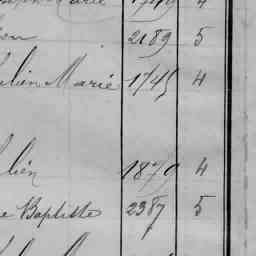 Marie 4
2189 5
Marie 1745 4
lien 1879 4
e Baptiste 2387 5